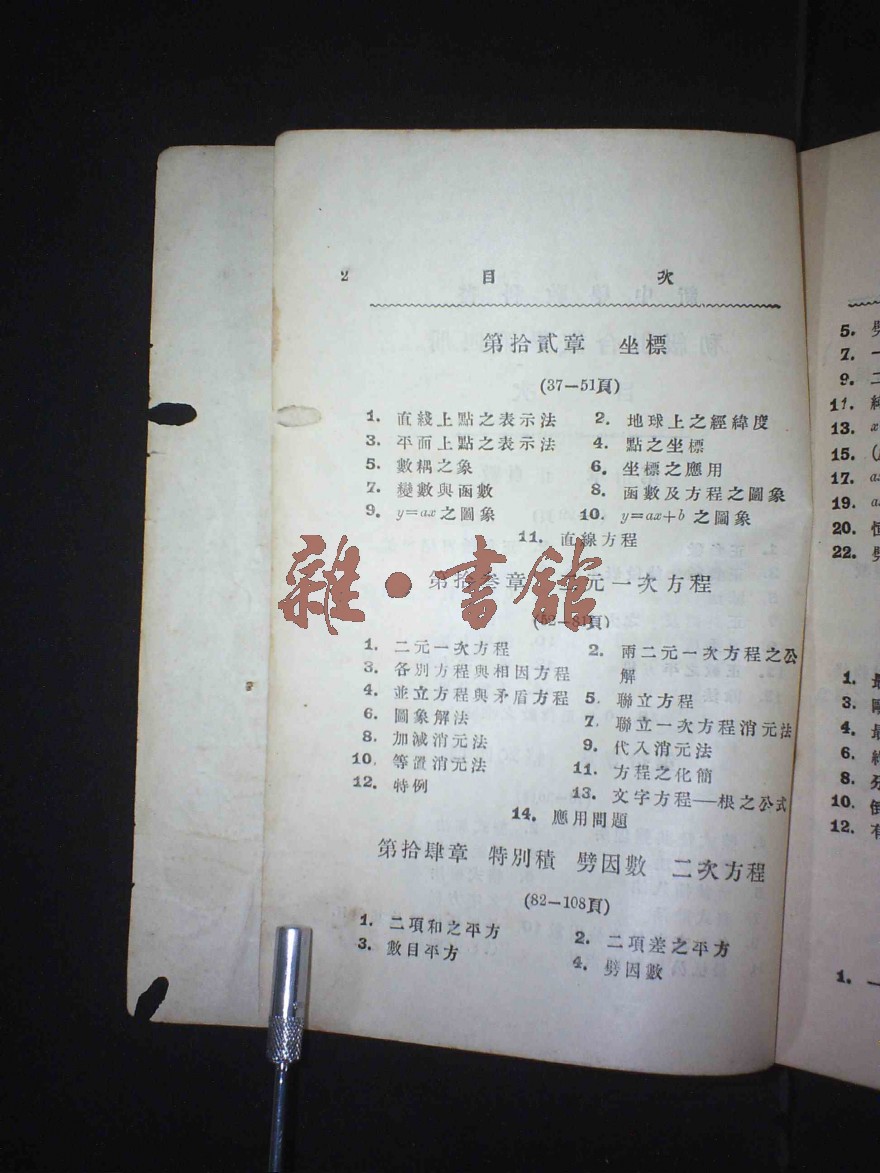 2 目 次
第拾貳章 坐標
(37—51頁)
1. 直綫上點之表示法 2. 地球上之經緯度
3. 平面上點之表示法 4. 點之坐標
5. 數耦之象 6. 坐標之應用
7. 變數與函數 8. 函數及方程之圖象
9. y=ax之圖象 10. y=ax+b 之圖象
11. 直線方程
第拾叁章 元一次方程
(52—81頁)
1. 二元一次方程 2. 兩二元一次方程之公
3. 各別方程與相因方程 解
4. 並立方程與矛盾方程 5. 聯立方程
6. 圖象解法 7. 聯立一次方程消元法
8. 加減消元法 9. 代入消元法
10. 等置消元法 11. 方程之化簡
12. 特例 13. 文字方程—根之公式
14. 應用問題
第拾肆章 特別積 劈因數 二次方程
(82—108頁)
1. 二項和之平方 2. 二項差之平方
3. 數目平方 4. 劈因數
雜·書館
5.
7. 一
9. 二
11.
13. x
15. (
17.
19.
20.
22.
1. 最
3.
4. 最
6.
8.
10. 倒
12. 有
1. 一